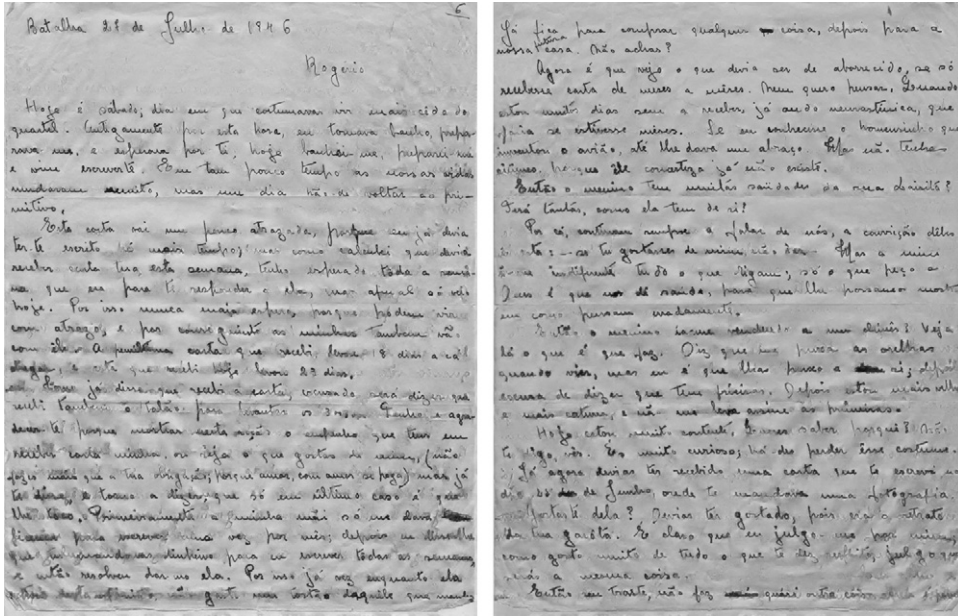 6
Batalha 27 de Julho de 1946
Rogério
Hoje é sabado, dia em que costumavas vir mais cedo do
quartel. Antigamente por esta hora, eu tomava banho, prepa-
rava-me, e esperava por ti, hoje banhei-me, preparei-me
e vim escrever-te. Em tam pouco tempo as nossas vidas
mudaram muito, mas um dia hão-de voltar ao pri-
mitivo.
Esta carta vai um pouco atrazada, porque eu já devia
ter-te escrito há mais tempo; mas como calculei que devia
receber carta tua esta semana, tenho esperado toda a sema-
na que era para te responder a ela, que afinal só veio
hoje. Por isso nunca mais espero, porque podem vir
com atrazo, e por conseguinte as minhas tambem vão
com êle. A penúltima carta que recebi levou 18 dias a cá
chegar, e esta que recebi hoje levou 23 dias.
já disse que recebi a carta, escusado será dizer que
recebi tambem o talão para levantar os Tenho e agra-
decer-te porque mostras nesta acção o empenho que tens em
receber cartas minhas, ou seja o que gostas de mim, (não
fazes mais que a tua obrigação, porque amor, com amor se paga) mas já
te disse, e torno a dizer, que só em último caso é que
lhe toco. Primeiramente a minha mãi só me dava
para escrever uma vez por mês; depois
dinheiro para eu escrever todas as semanas,
e então resolveu dar-mo ela. Por isso já vez enquanto ela
não gasto nem tostão daquele que mandas
Já fica para comprar qualquer coisa, depois para a
nossa futura casa. Não achas?
Agora é que vejo o que devia ser de aborrecido, se só
recebesse carta de meses a meses. Nem quero pensar. Quando
estou muitos dias sem a receber, já ando neurasténica, que
faria se estivesse meses. Se eu conhecesse o homensinho que
inventou o avião, até lhe dava um abraço. Mas não. Tenhas
ciúmes, porque êle já não existe.
Então o menino tem muitas saudades da sua
Terá tantas, como ela tem de si?
Por cá, continuam sempre a falar de nós, a convicção deles
é esta: — se tu gostares de mim, não Mas a mim
é-me indiferente tudo o que digam; só o que peço a
Deus é que nos dê saúde, para que lhe possamos mostrar
em como pensam erradamente.
Então o menino vendendo a um chinês? Veja
lá o que é que faz. Diz que me puxa as orelhas
quando vier, mas eu é que lhas puxo a si; depois
escusa de dizer que tem Depois estou mais velha
e mais e não me leva assim as primeiras.
Hoje estou muito contente, queres saber porquê? Não
te digo, vês. És muito curioso; hás-de perder êsse costume.
Já agora devias ter recebido uma carta que te escrevi no
dia de Junho, onde te mandava uma fotografia.
Gostaste dela? Devias ter gostado, pois era o retrato
da tua garôta. É claro que eu julgo-me por mim,
como gosto muito de tudo o que te diz respeito, julgo que
a mesma coisa.
Então seu traste, não faz outra coisa